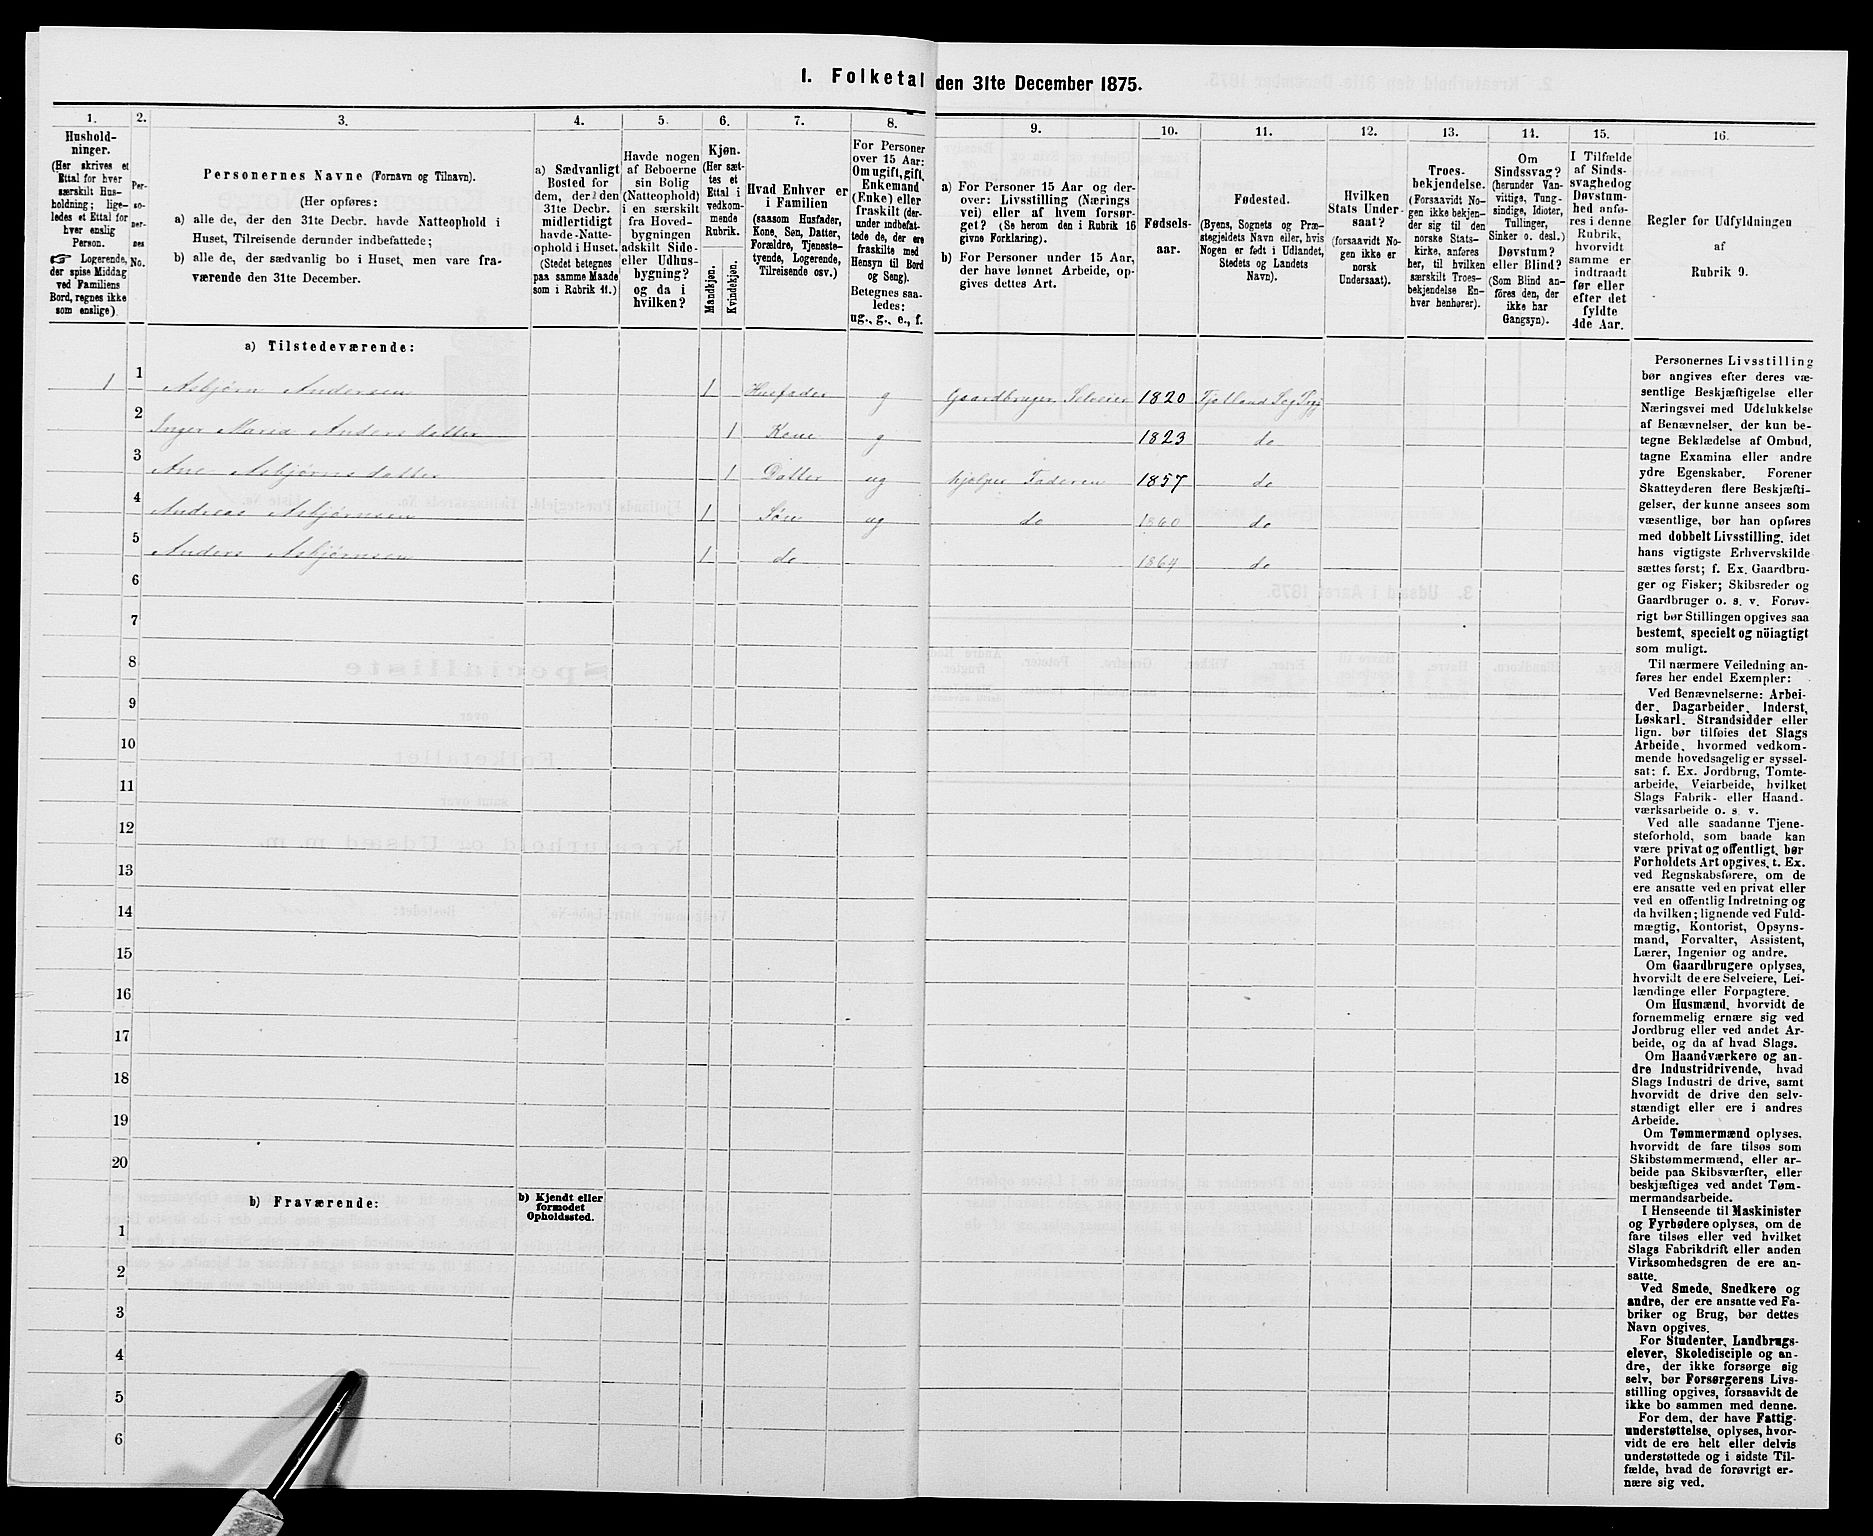 1. Folketal den 31te December 1875.
1.
Hushold-
ninger.
(Her skrives et
Ettal for hver
særskilt Hus-
holdning; lige-
ledes et Ettal for
hver enslig
Person.
☞ Logerende,
der spise Middag
ved Familiens
Bord, regnes ikke
som enslige)
2.
Per-
so-
ner-
nes
No.
3.
Personernes Navne (Fornavn og Tilnavn).
(Her opføres:
a) alle de, der den 31te Decbr. havde Natteophold i
Huset, Tilreisende derunder indbefattede;
b) alle de, der sædvanlig bo i Huset, men vare fra-
værende den 31te December.
4.
a) Sædvanligt
Bosted for
dem, der den
31te Decbr.
midlertidigt
havde Natte-
ophold i Huset.
(Stedet betegnes
paa samme Maade
som i Rubrik 11.)
5.
Havde nogen
af Beboerne
sin Bolig
(Natteophold)
i en særskilt
fra Hoved-
bygningen
adskilt Side-
eller Udhus-
bygning?
og da i
hvilken?
6.
Kjøn.
(Her sæt-
tes et
Ettal i
vedkom-
mende
Rubrik.
Mandkjøn.
Kvindekjøn.
7.
Hvad Enhver er
i Familien
(saasom Husfader,
Kone, Søn, Datter,
Forældre, Tjeneste-
tyende, Logerende,
Tilreisende osv.)
8.
For Personer
over 15 Aar:
Om ugift, gift,
Enkemand
(Enke) eller
fraskilt (der-
under indbefat-
tede de, der ere
fraskilte med
Hensyn til Bord
og Seng).
Betegnes saa-
ledes:
ug., g., e., f.
9.
a) For Personer 15 Aar og der-
over: Livsstilling (Nærings
vei) eller af hvem forsør-
get? (Se herom den i Rubrik 16
givne Forklaring).
b) For Personer under 15 Aar,
der have lønnet Arbeide, op-
gives dettes Art.
10.
Fødsels-
aar.
11.
Fødested.
(Byens, Sognets og Præ-
stegjeldets Navn eller, hvis
Nogen er født i Udlandet,
Stedets og Landets
Navn).
12.
Hvilken
Stats Under-
saat?
(forsaavidt No-
gen ikke er
norsk
Undersaat).
13.
Troes-
bekjendelse.
(Forsaavidt No-
gen ikke bekjen-
der sig til den
norske Stats-
kirke, anføres
her, til hvilken
særskilt Troes-
bekjendelse En-
hver henhører).
14.
Om
Sindssvag?
(herunder Van-
vittige, Tung-
sindige, Idioter,
Tullinger,
Sinker o. desl.)
Døvstum?
eller Blind?
(Som Blind an-
føres den, der
ikke har
Gangsyn).
15.
I Tilfælde
af Sinds-
svaghedog
Døvstum-
hed anfø-
res i denne
Rubrik,
hvorvidt
samme er
indtraadt
før eller
efter det
fyldte
4de Aar.
16.
Regler for Udfyldningen
af
Rubrik 9.
a) Tilstedeværende:
1 1 Asbjørn Andersen 1 Husfader g Gaardbruger Selveier 1820 Fjotland
2 Inger Maria Andersdatter 1 Kone g 1823 do
3 Ane Asbjørnsdatter 1 Datter ug hjelper Faderen 1857 do
4 Andreas Asbjørnsen 1 Søn ug do 1860 do
5 Anders Asbjørnsen 1 do 1864 do
6
7
8
9
10
11
12
13
14
15
16
17
18
19
20
b) Fraværende:
b) Kjendt eller
formodet
Opholdssted.
1
2
3
4
5
6
Personernes Livsstilling
bør angives efter deres væ-
sentlige Beskjæftigelse eller
Næringsvei med Udelukkelse
af Benævnelser, der kun be-
tegne Beklædelse af Ombud,
tagne Examina eller andre
ydre Egenskaber. Forener
Skatteyderen flere Beskjæfti-
gelser, der kunne ansees som
væsentlige, bør han opføres
med dobbelt Livsstilling, idet
hans vigtigste Erhvervskilde
sættes først; f. Ex. Gaardbru-
ger og Fisker; Skibsreder og
Gaardbruger o. s. v. Forøv-
rigt bør Stillingen opgives saa
bestemt, specielt og nöiagtigt
som muligt.
Til nærmere Veiledning an-
føres her endel Exempler:
Ved Benævnelserne: Arbei-
der, Dagarbeider, Inderst,
Løskarl, Strandsidder eller
lign. bør tilføies det Slags
Arbeide, hvormed vedkom-
mende hovedsagelig er syssel-
sat; f. Ex. Jordbrug, Tomte-
arbeide, Veiarbeide, hvilket
Slags Fabrik- eller Haand-
værksarbeide o. s. v.
Ved alle saadanne Tjene-
steforhold, som baade kan
være privat og offentligt, bør
Forholdets Art opgives, t. Ex.
ved Regnskabsførere, om de
ere ansatte ved en privat eller
ved en offentlig Indretning og
da hvilken; lignende ved Fuld-
mægtig, Kontorist, Opsyns-
mand, Forvalter, Assistent,
Lærer, Ingeniør og andre.
Om Gaardbrugere oplyses,
hvorvidt de ere Selveiere, Lei-
lændinge eller Forpagtere.
Om Husmænd, hvorvidt de
fornemmelig ernære sig ved
Jordbrug eller ved andet Ar-
beide, og da af hvad Slags.
Om Haandværkere og an-
dre Industridrivende, hvad
Slags Industri de drive, samt
hvorvidt de drive den selv-
stændigt eller ere i andres
Arbeide.
Om Tømmermænd oplyses,
hvorvidt de fare tilsøs som
Skibstømmermænd, eller ar-
beide paa Skibsværfter, eller
beskjæftiges ved andet Tøm-
mermandsarbeide.
I Henseende til Maskinister
og Fyrbødere oplyses, om de
fare tilsøs eller ved hvilket
Slags Fabrikdrift eller anden
Virksomhedsgren de ere an-
satte.
Ved Smede, Snedkere og
andre, der ere ansatte ved Fa-
briker og Brug, bør dettes
Navn opgives.
For Studenter, Landbrugs-
elever, Skoledisciple og an-
dre, der ikke forsørge sig
selv, bør Forsørgerens Livs-
stilling opgives, forsaavidt de
ikke bo sammen med denne.
For dem, der have Fattig-
understøttelse, oplyses, hvor-
vidt de ere helt eller delvis
understøttede og i sidste Til-
fælde, hvad de forøvrigt er-
nære sig ved.